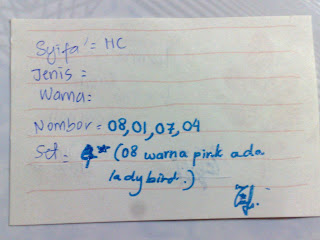 Syifa' = MC
Jenis =
Warna:
Nombor = 08, 01, 07, 04
Set = (08 warna pink ada
ladybird.)